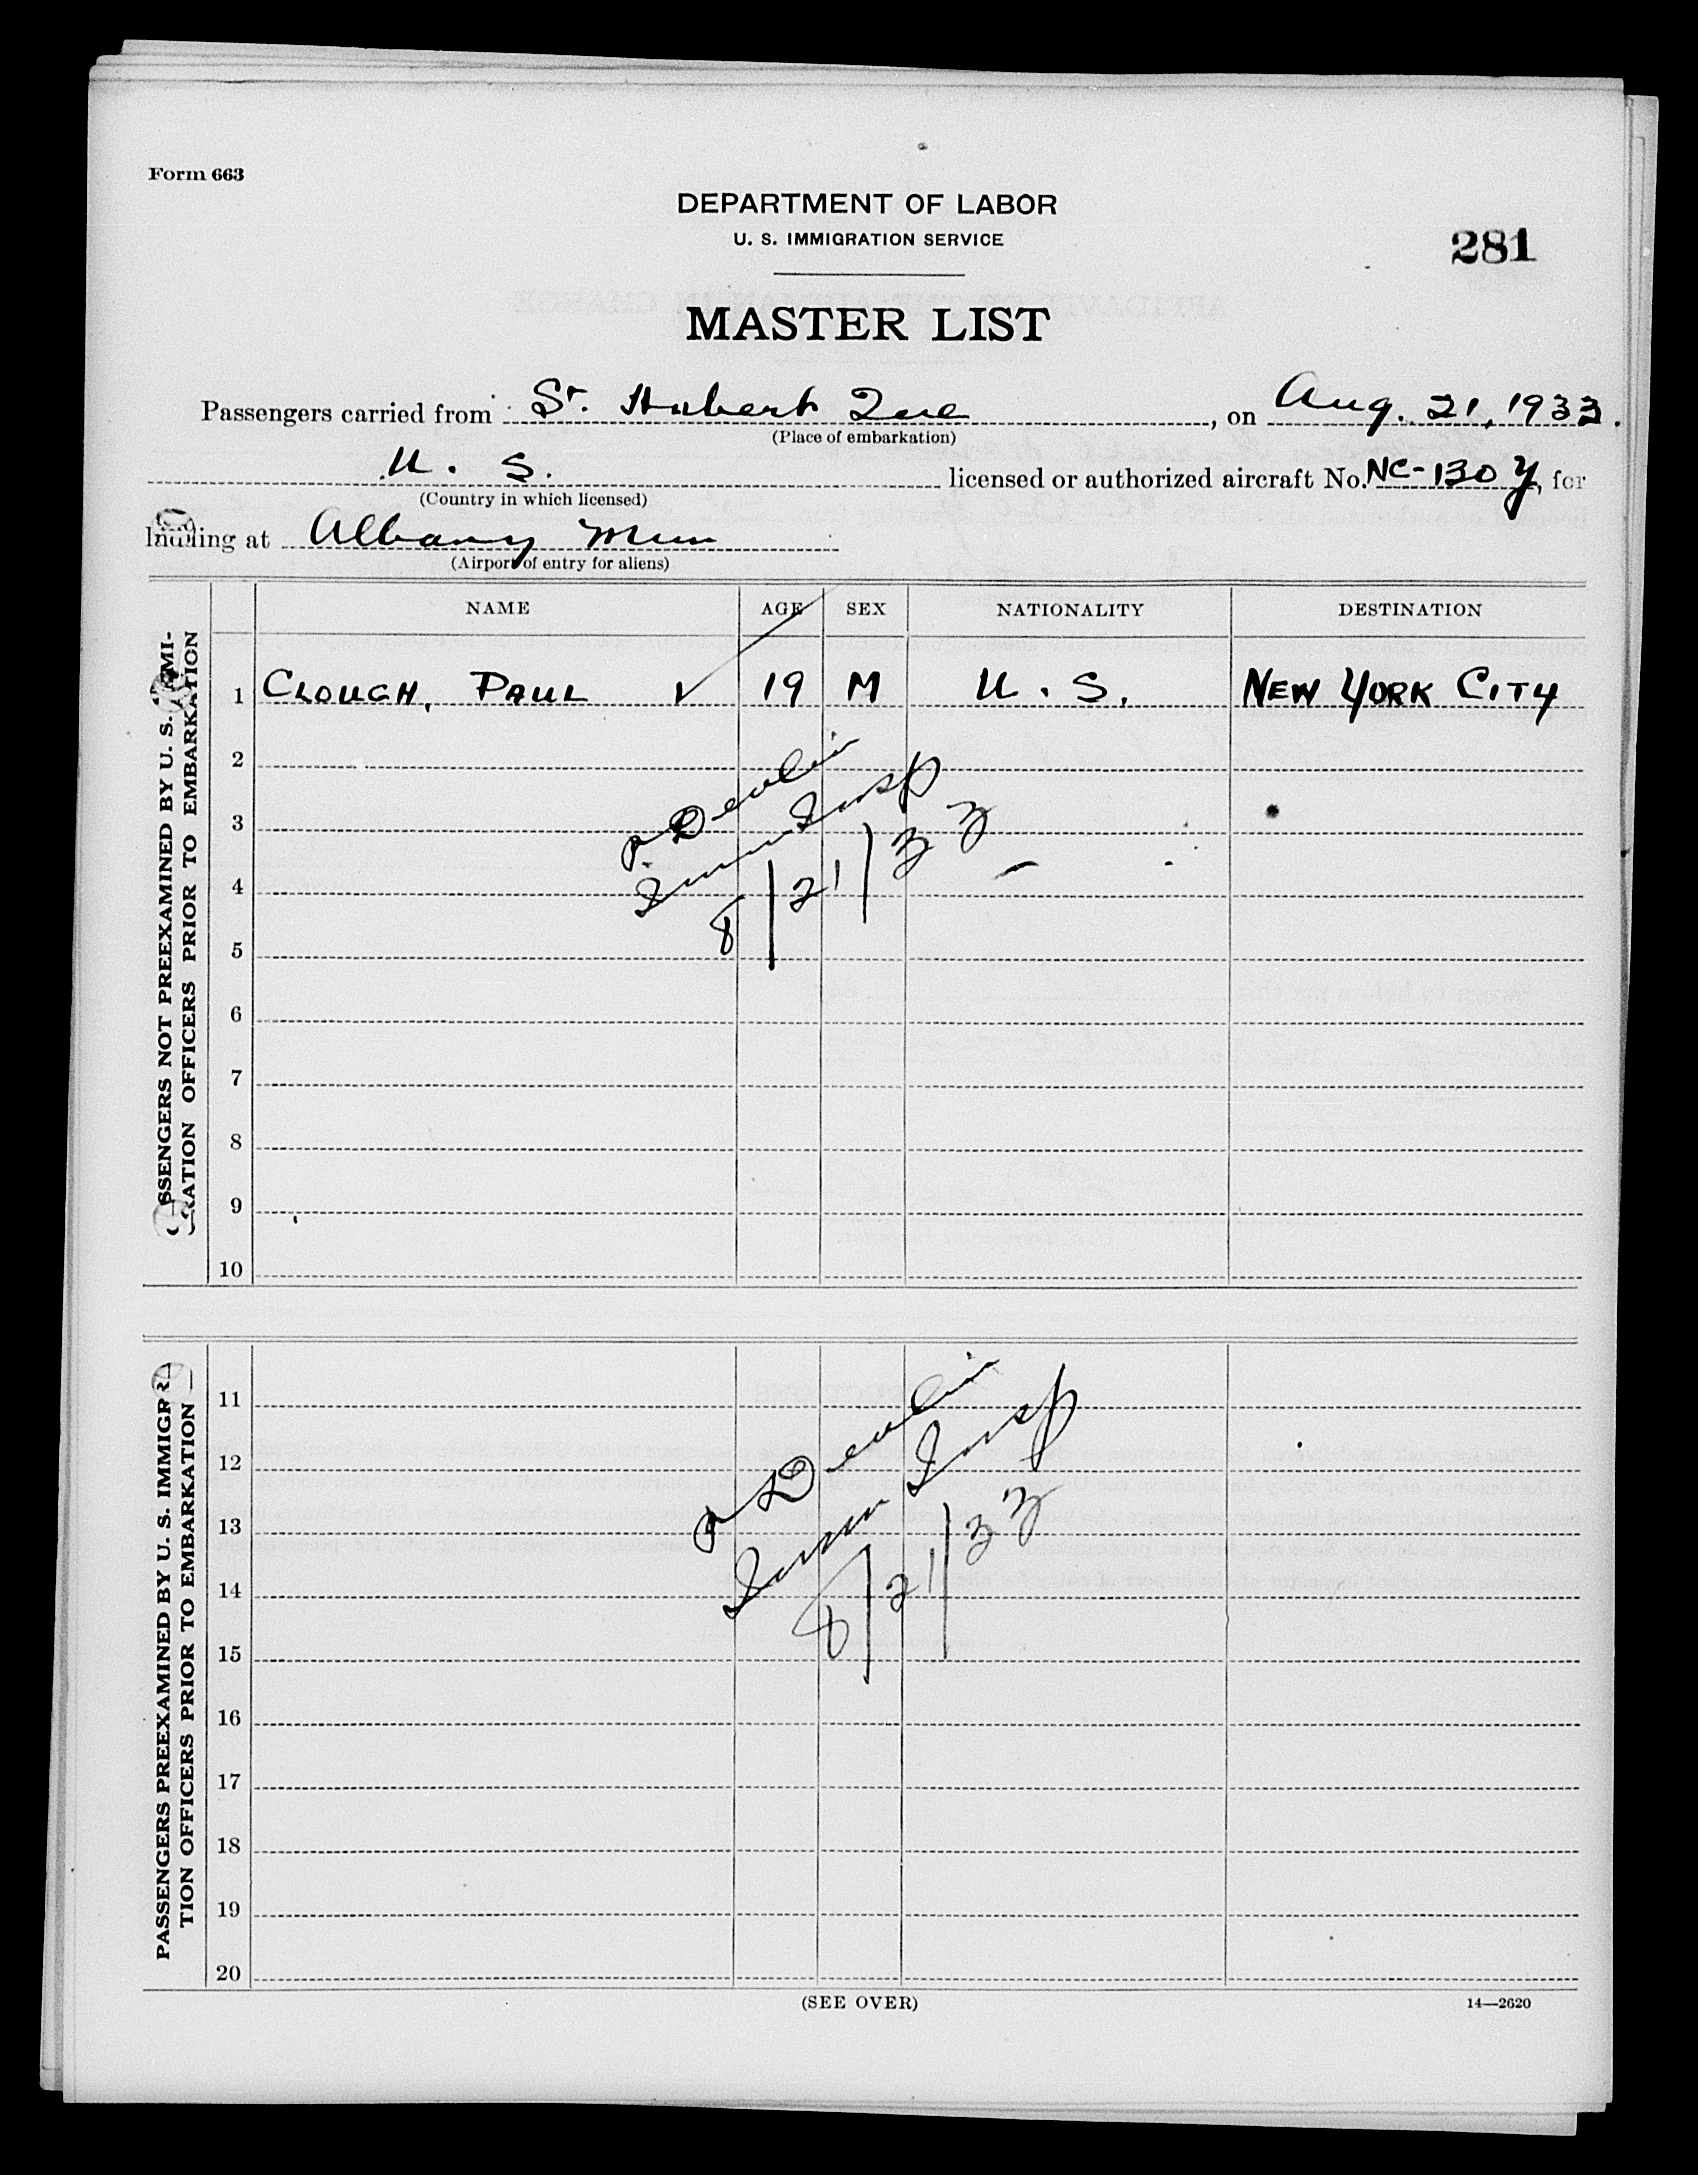 Form 663
DEPARTMENT OF LABOR
U. S. IMMIGRATION SERVICE
281
MASTER LIST
Passengers carried from St. Hubert Que, on Aug. 21, 1933.
(Place of embarkation)
U. S. licensed or authorized aircraft No. NC-130Y, for
(Country in which licensed)
landing at Albany Mun
(Airport of entry for aliens)
NAME AGE SEX NATIONALITY DESTINATION
PASSENGERS NOT PREEXAMINED BY U. S. IMMI-
GRATION OFFICERS PRIOR TO EMBARKATION
1 CLOUGH, PAUL ✓ 19 M U. S. NEW YORK CITY
2
3
4
5
6
7
8
9
10
Devlin
Immn Insp
8/21/33
PASSENGERS PREEXAMINED BY U. S. IMMIGRA-
TION OFFICERS PRIOR TO EMBARKATION
11
12
13
14
15
16
17
18
19
20
Devlin
Immn Insp
8/21/33
(SEE OVER)
14—2620